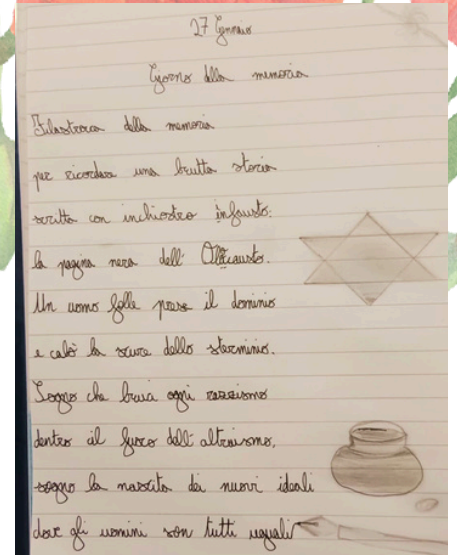 27 Gennaio
Giorno della memoria
Filastrocca della memoria
per ricordare una brutta storia
scritta con inchiostro infausto:
la pagina nera dell' Olocausto.
Un uomo folle prese il dominio
e calò la scure dello sterminio.
Sogno che brucia ogni razzismo
dentro il fuoco dell'altruismo,
sogno la nascita dei nuovi ideali
dove gli uomini son tutti uguali